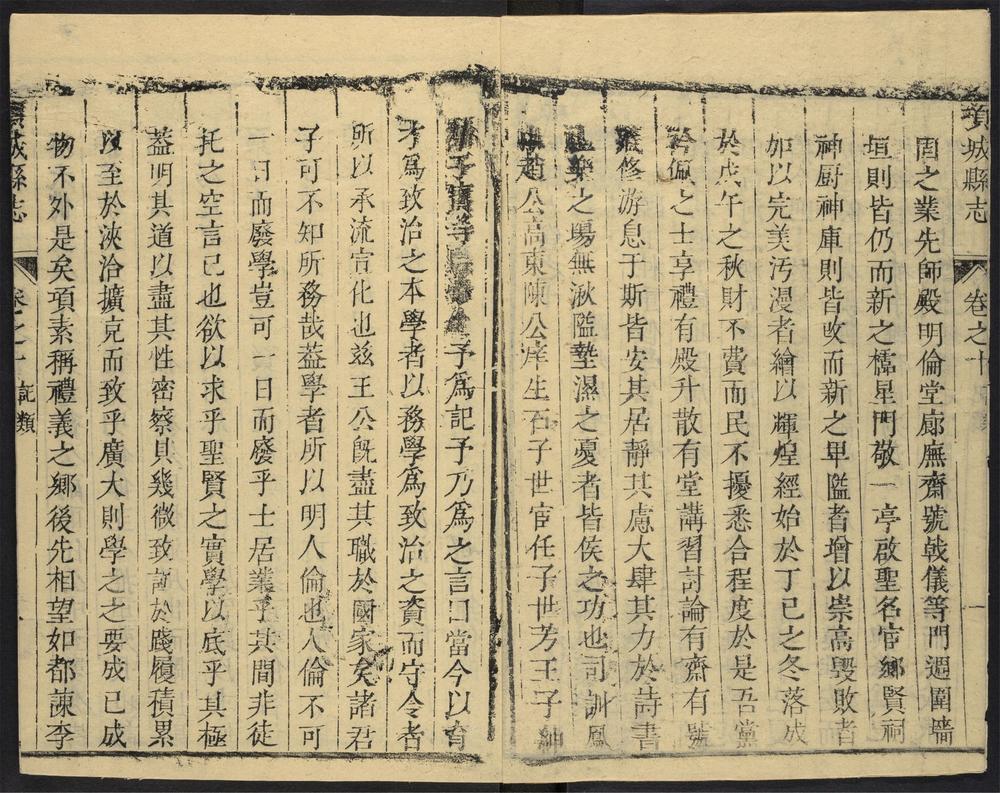 項城縣志
卷之十
周之業先師殿明倫堂廊廡齋號戟儀等門週圍墻
垣則皆仍而新之櫺星門敬一亭啟聖名宦鄉賢祠
神厨神庫則皆改而新之卑隘者增以崇高毀敗者
如以完美汚漫者繪以輝煌經始於丁巳之冬落成
於戊午之秋財不費而民不擾悉合程度於是吾黨
衿佩之士享禮有殿升散有堂講習討論有齋有號
修游息于斯皆安其居靜其慮大肆其力於詩書
樂之塲無湫隘墊濕之憂者皆侯之功也司訓鳳
趙公高東陳公洋生石子世官任子世芳王子紳
予爲記予乃爲之言曰當今以育
才爲致治之本學者以務學爲致治之資而守令者
所以承流宣化也兹王公旣盡其職於國家矣諸君
子可不知所務哉葢學者所以明人倫也人倫不可
一日而廢學豈可一日而廢乎士居業乎其間非徒
托之空言已也欲以求乎聖賢之實學以底乎其極
葢明其道以盡其性密察其幾微致於踐履積累
以至於浹洽擴克而致乎廣大則學之之要成已成
物不外是矣項素稱禮義之鄉後先相望如都諫李
城縣志
卷之十
記類